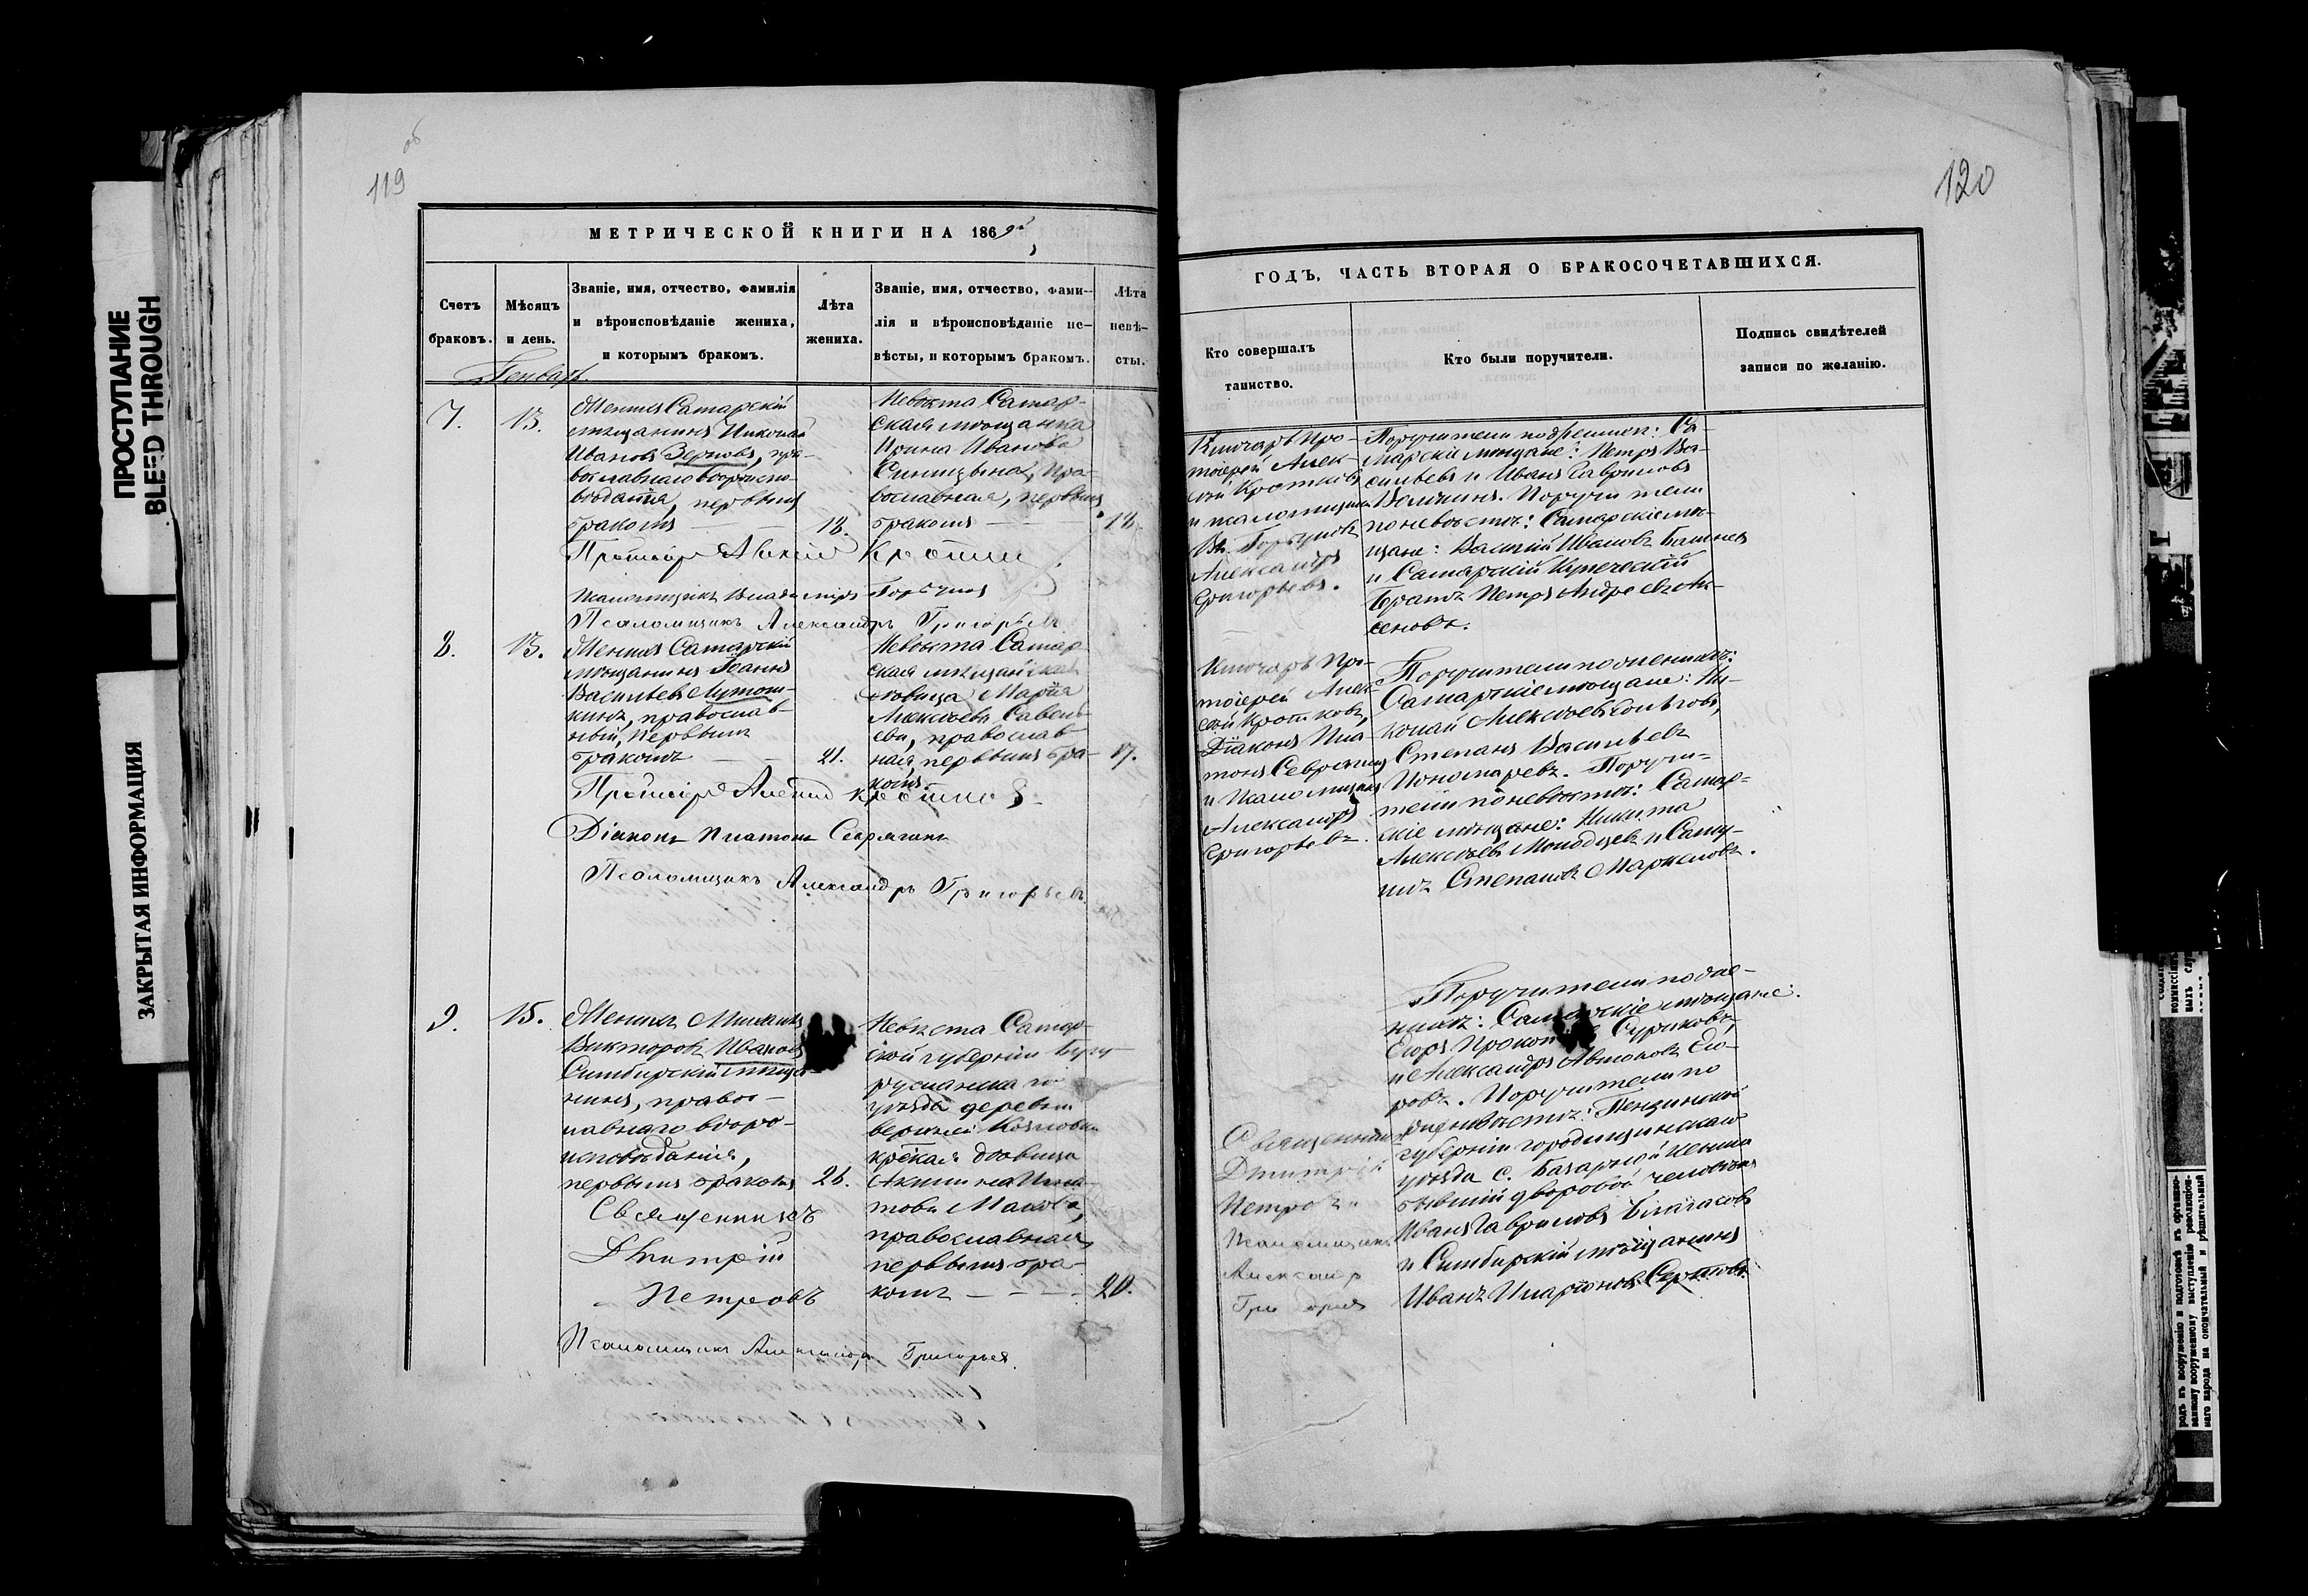 об
119
МЕТРИЧЕСКОЙ КНИГИ НА 1869
Счетъ браковъ.
Мѣсяцъ и день.
Званіе, имя, отчество, фамилія
и вѣроисповѣданіе жениха,
и которымъ бракомъ.
Лѣта жениха.
Званіе, имя, отчество, фами-
лія и вѣроисповѣданіе не-
вѣсты, и которымъ бракомъ.
Лѣта невѣ-
сты.
Генварь.
7.
13.
Женихъ Самарскій
мѣщанинъ Николай
Ивановъ Зерновъ, пра-
вославнаго вѣроиспо-
вѣданія, первымъ
бракомъ
18.
Невѣста Самар-
ская мѣщанка
Ирина Иванова
православная, первымъ
бракомъ
18.
Протоіерей Алексій Кротков
Псаломщикъ Владиміръ Горбуновъ
Псаломщикъ Александръ Григорьевъ
8.
13.
Женихъ Самарскій
мѣщанинъ Іоаннъ
Васильевъ Лутош-
кинъ, православ-
ный, первымъ
бракомъ
21.
Невѣста Самар-
ская мѣщанская
дѣвица Марія
Алексѣева Савель-
ева, православ-
ная, первымъ бра-
комъ.
17.
Протоіерей Алексій Кротковъ
Діаконъ Платонъ Севрягинъ
Псаломщикъ Александръ Григорьевъ
9.
15.
Женихъ Михаилъ
Викторовъ Ивановъ
Симбирскій мѣща-
нинъ, правос-
лавнаго вѣро-
исповѣданія,
первымъ бракомъ
26.
Невѣста Самар-
ской губерніи Бугу-
русланскаго
уѣзда деревни
верхней
дѣвица
православная,
первымъ бра-
комъ
20.
Священникъ
Дмитрій
Петровъ
Псаломщикъ Александръ Григорьевъ
120
ГОДЪ, ЧАСТЬ ВТОРАЯ О БРАКОСОЧЕТАВШИХСЯ.
Кто совершалъ
таинство.
Кто были поручители.
Подпись свидѣтелей
записи по желанію.
Ключарь Про-
тоіерей Алек-
сѣй Кротковъ
и псаломщики
Вл. Горбуновъ
Александръ
Григорьевъ.
Поручители по женихѣ: Са-
марскіе мѣщане: Петръ Ва-
сильевъ и Иванъ Гавриловъ
Поручители
по невѣстѣ: Самарскіе мѣ-
щане: Василій Ивановъ
и Самарскій Купеческій
братъ Петръ Андреевъ Ак-
сеновъ.
Ключарь Про-
тоіерей Алек-
сѣй Кротковъ,
Діаконъ Пла-
тонъ Севрягинъ
и Псаломщикъ
Александръ
Григорьевъ.
Поручители по женихѣ:
Самарскіе мѣщане: Ни-
колай Алексѣевъ
Степанъ Васильевъ
Пономаревъ. Поручи-
тели по невѣстѣ: Самар-
скіе мѣщане: Никита
Алексѣевъ Молодцевъ и
Степановъ Маркеловъ.
Священникъ
Дмитрій
Петровъ
Псаломщикъ
Александръ
Григорьевъ
Поручители по же-
нихѣ: Самарскіе мѣщане:
Егоръ Суриковъ,
и Александръ Его-
ровъ. Поручители по
невѣстѣ: Пензинской
губерніи городищинскаго
уѣзда с. Базарной Кеньши
бывшій дворовой человѣкъ
Иванъ Гавриловъ
и Симбирскій мѣщанинъ
Иванъ
ПРОСТУПАНИЕ
BLEED THROUGH
ЗАКРЫТАЯ ИНФОРМАЦИЯ